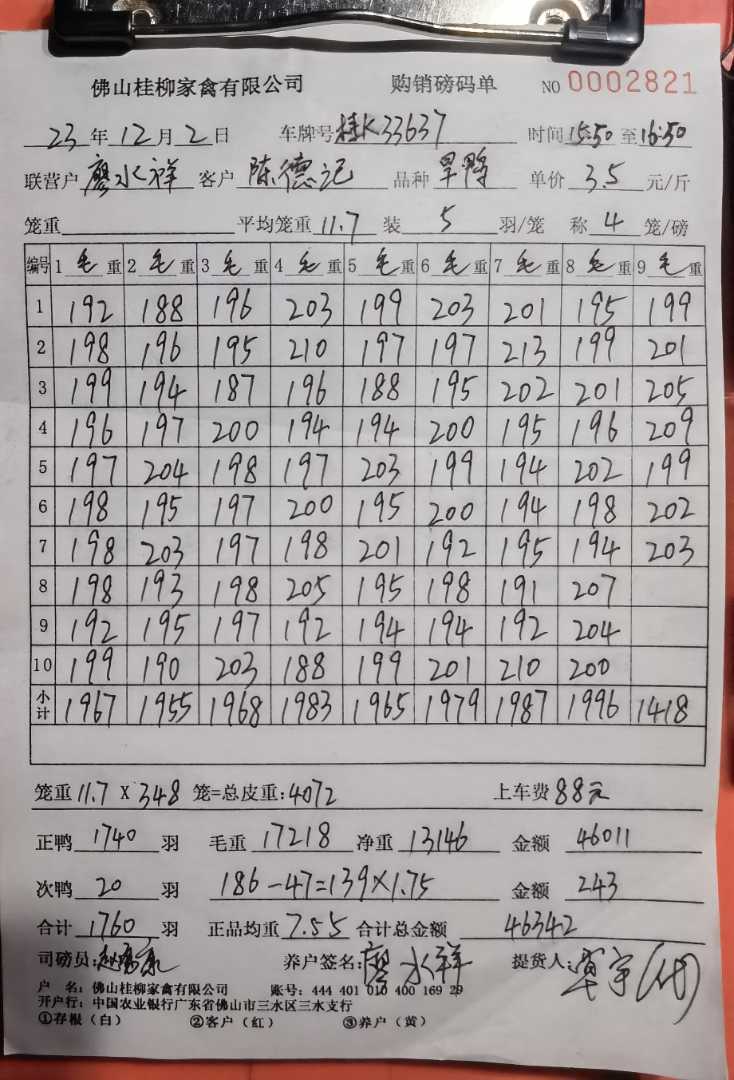 佛山桂柳家禽有限公司 购销磅码单 NO 0002821
23年12月2日 车牌号桂K33637 时间15:50至16:50
联营户廖水祥 客户陈德记 品种旱鸭 单价3.5元/斤
笼重 平均笼重11.7 装5羽/笼 称4笼/磅
编号 1毛重 2毛重 3毛重 4毛重 5毛重 6毛重 7毛重 8毛重 9毛重
1 192 188 196 203 199 203 201 195 199
2 198 196 195 210 197 197 213 199 201
3 199 194 187 196 188 195 202 201 205
4 196 197 200 194 194 200 195 196 209
5 197 204 198 197 203 199 194 202 199
6 198 195 197 200 195 200 194 198 202
7 198 203 197 198 201 192 195 194 203
8 198 193 198 205 195 198 191 207
9 192 195 197 192 194 194 192 204
10 199 190 203 188 199 201 210 200
小计 1967 1955 1968 1983 1965 1979 1987 1996 1418
笼重11.7X348笼=总皮重:4072 上车费88元
正鸭1740羽 毛重17218净重13146 金额46011
次鸭20羽 186-47=139×1.75 金额243
合计1760羽 正品均重7.55合计总金额46342
司磅员: 养户签名:廖水祥 提货人:覃宇(代)
户 名:佛山桂柳家禽有限公司 账号:444 401 010 400 169 29
开户行:中国农业银行广东省佛山市三水区三水支行
①存根(白) ②客户(红) ③养户(黄)